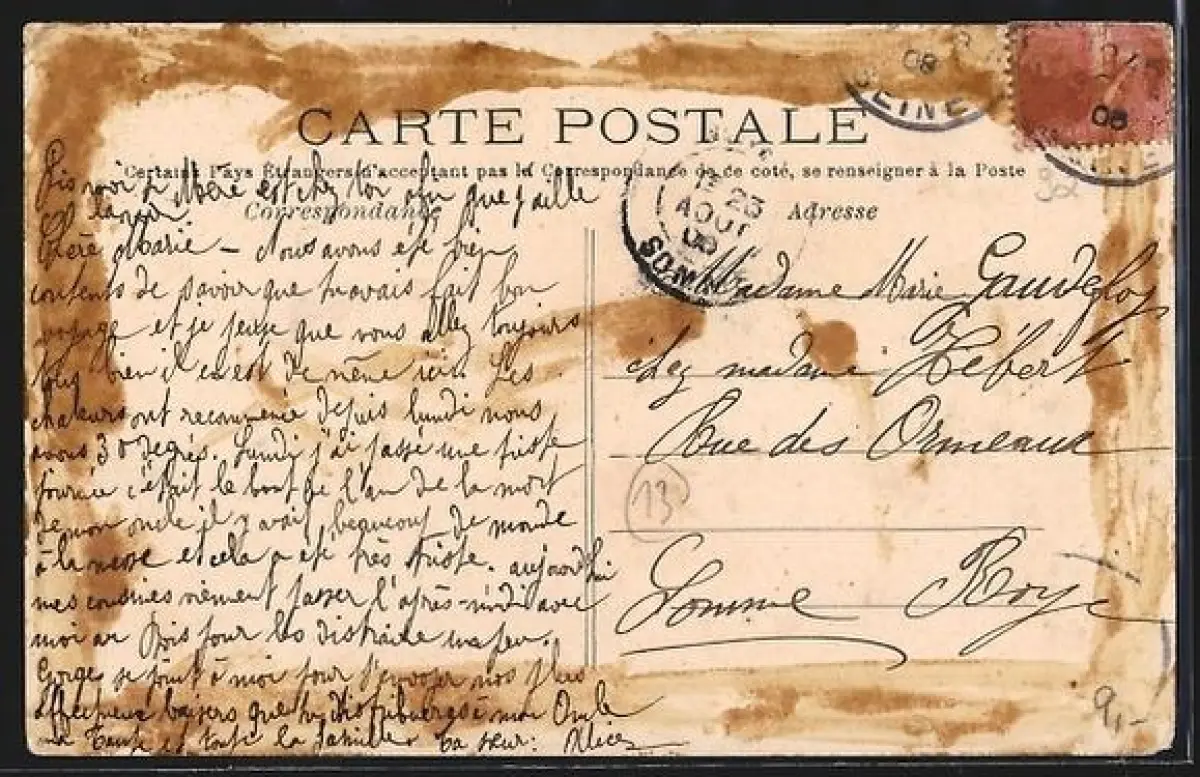 CARTE POSTALE
Certains Pays Étrangers n'acceptant pas la Correspondance de ce coté, se renseigner à la Poste
Correspondance
Adresse
Dis moi si Mère est chez toi afin que j'aille
la voir
Chère Marie – Nous avons été bien
contents de savoir que tu avais fait bon
voyage et je pense que vous allez toujours
tous bien il en est de même ici. Les
chaleurs ont recommencé depuis lundi nous
avons 30 degrés. Lundi j'ai passé une triste
journée c'était le bout de l'an de la mort
de mon oncle il y avait beaucoup de monde
à la messe et cela a été très triste. aujourd'hui
mes cousines viennent passer l'après-midi avec
moi au Bois pour les distraire un peu.
Gorges se joint à moi pour t'envoyer nos plus
affectueux baisers que tu distribueras à mon Oncle
ma Tante et toute la famille. Ta sœur: Alice
SEINE
08
08
23
AOUT
08
SOMME
Madame Marie Gaudefroy
chez madame Hébert
Rue des Ormeaux
13
Somme Roye
9,-